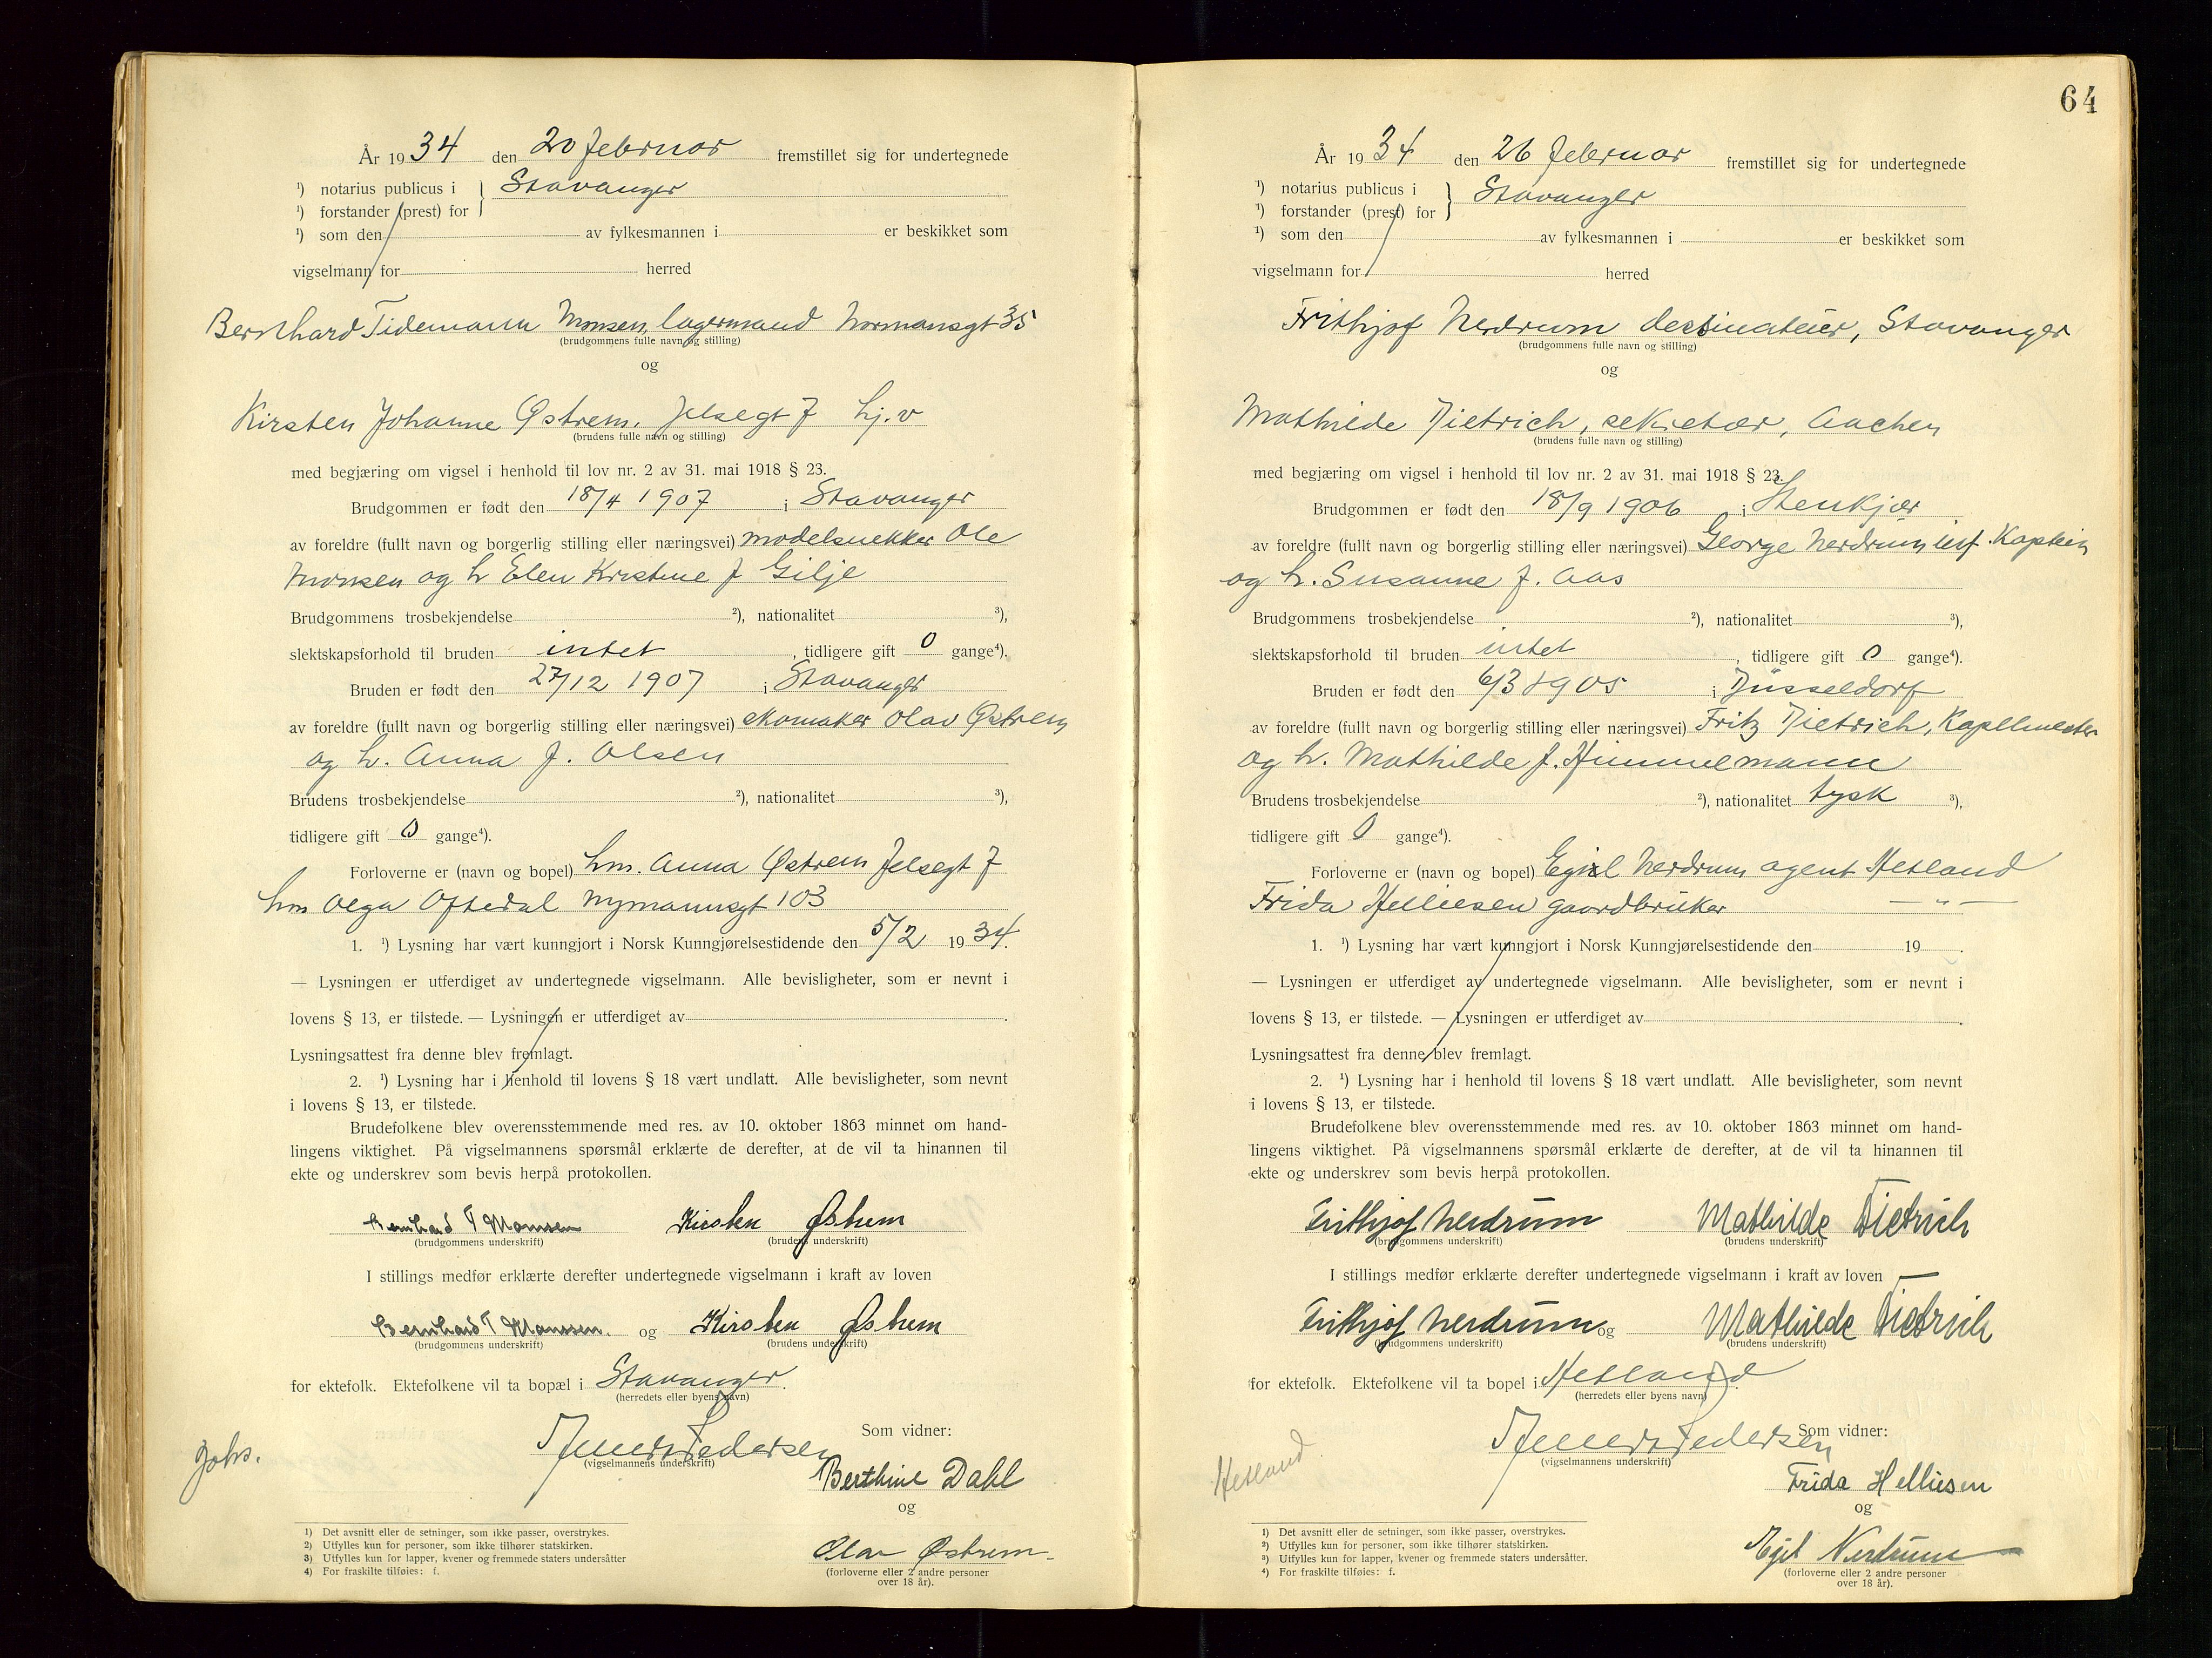 År 1934 den 20 februar fremstillet sig for undertegnede
¹) notarius publicus i } Stavanger
¹) forstander (prest) for
¹) som den av fylkesmannen i er beskikket som
vigselmann for herred
Bernhard Tidemann Monsen, lagermand Normansgt 35
(brudgommens fulle navn og stilling)
og
Kirsten Johanne Østrem, Jelsegt 7 hj.v
(brudens fulle navn og stilling)
med begjæring om vigsel i henhold til lov nr. 2 av 31. mai 1918 § 23.
Brudgommen er født den 18/4 1907 i Stavanger
av foreldre (fullt navn og borgerlig stilling eller næringsvei) modelsnekker Ole
Monsen og h Elen Kristine f Gilje
Brudgommens trosbekjendelse ²), nationalitet ³),
slektskapsforhold til bruden intet, tidligere gift 0 gange⁴).
Bruden er født den 27/12 1907 i Stavanger
av foreldre (fullt navn og borgerlig stilling eller næringsvei) skomaker Olav Østrem
og h. Anna f. Olsen
Brudens trosbekjendelse ²), nationalitet ³),
tidligere gift 0 gange⁴).
Forloverne er (navn og bopel) hm. Anna Østrem Jelsegt 7
hm Olga Oftedal Nymannsgt 103
1. ¹) Lysning har vært kunngjort i Norsk Kunngjørelsestidende den 5/2 1934.
— Lysningen er utferdiget av undertegnede vigselmann. Alle bevisligheter, som er nevnt i
lovens § 13, er tilstede. — Lysningen er utferdiget av .
Lysningsattest fra denne blev fremlagt.
2. ¹) Lysning har i henhold til lovens § 18 vært undlatt. Alle bevisligheter, som nevnt
i lovens § 13, er tilstede.
Brudefolkene blev overensstemmende med res. av 10. oktober 1863 minnet om hand-
lingens viktighet. På vigselmannens spørsmål erklærte de derefter, at de vil ta hinannen til
ekte og underskrev som bevis herpå protokollen.
Bernhard T Monsen Kirsten Østrem
(brudgommens underskrift) (brudens underskrift)
I stillings medfør erklærte derefter undertegnede vigselmann i kraft av loven
Bernhard T Monsen. og Kirsten Østrem
(brudgommens underskrift) (brudens underskrift)
for ektefolk. Ektefolkene vil ta bopæl i Stavanger.
(herredets eller byens navn)
Som vidner:
Pedersen
(vigselmannens underskrift)
Johs.
Berthine Dahl
og
Olav Østrem
(forloverne eller 2 andre personer
over 18 år).
1) Det avsnitt eller de setninger, som ikke passer, overstrykes.
2) Utfylles kun for personer, som ikke tilhører statskirken.
3) Utfylles kun for lapper, kvener og fremmede staters undersåtter
4) For fraskilte tilføies: f.
64
År 1934 den 26 februar fremstillet sig for undertegnede
¹) notarius publicus i } Stavanger
¹) forstander (prest) for
¹) som den av fylkesmannen i er beskikket som
vigselmann for herred
Frithjof Nerdrum dessinateur, Stavanger
(brudgommens fulle navn og stilling)
og
Mathilde Dietrich, sekretær, Aachen
(brudens fulle navn og stilling)
med begjæring om vigsel i henhold til lov nr. 2 av 31. mai 1918 § 23.
Brudgommen er født den 18/9 1906 i Stenkjær
av foreldre (fullt navn og borgerlig stilling eller næringsvei) George Nerdrum inf. Kaptein
og h. Susanne f. Aas
Brudgommens trosbekjendelse ²), nationalitet ³),
slektskapsforhold til bruden intet, tidligere gift 0 gange⁴).
Bruden er født den 6/3 1905 i Düsseldorf
av foreldre (fullt navn og borgerlig stilling eller næringsvei) Fritz Dietrich, Kapellmester
og h. Mathilde f. Himmelmann
Brudens trosbekjendelse ²), nationalitet tysk ³),
tidligere gift 0 gange⁴).
Forloverne er (navn og bopel) Egil Nerdrum agent Hetland
Frida Helliesen gaardbruker — " —
1. ¹) Lysning har vært kunngjort i Norsk Kunngjørelsestidende den 19 .
— Lysningen er utferdiget av undertegnede vigselmann. Alle bevisligheter, som er nevnt i
lovens § 13, er tilstede. — Lysningen er utferdiget av .
Lysningsattest fra denne blev fremlagt.
2. ¹) Lysning har i henhold til lovens § 18 vært undlatt. Alle bevisligheter, som nevnt
i lovens § 13, er tilstede.
Brudefolkene blev overensstemmende med res. av 10. oktober 1863 minnet om hand-
lingens viktighet. På vigselmannens spørsmål erklærte de derefter, at de vil ta hinannen til
ekte og underskrev som bevis herpå protokollen.
Frithjof Nerdrum Mathilde Dietrich
(brudgommens underskrift) (brudens underskrift)
I stillings medfør erklærte derefter undertegnede vigselmann i kraft av loven
Frithjof Nerdrum og Mathilde Dietrich
(brudgommens underskrift) (brudens underskrift)
for ektefolk. Ektefolkene vil ta bopel i Hetland.
(herredets eller byens navn)
Som vidner:
Pedersen
(vigselmannens underskrift)
Hetland
Frida Helliesen
og
Egil Nerdrum
(forloverne eller 2 andre personer
over 18 år).
1) Det avsnitt eller de setninger, som ikke passer, overstrykes.
2) Utfylles kun for personer, som ikke tilhører statskirken.
3) Utfylles kun for lapper, kvener og fremmede staters undersåtter.
4) For fraskilte tilføies: f.